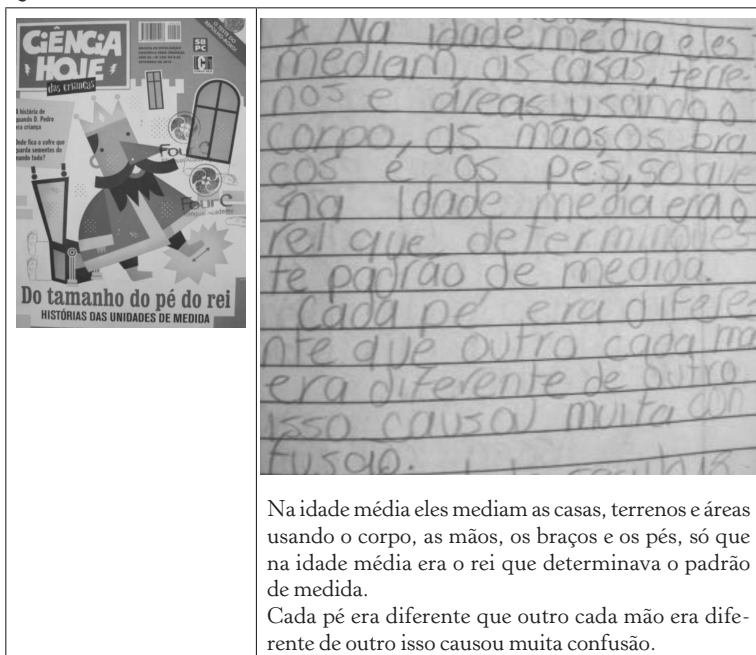 CIÊNCIA
HOJE
das crianças
SB
PC
A história de
quando D. Pedro
era criança
Onde fica o cofre que
guarda sementes do
mundo todo?
Do tamanho do pé do rei
HISTÓRIAS DAS UNIDADES DE MEDIDA
Na idade media eles
mediam as casas, terre
nos e áreas usando o
corpo, as mãos, os bra
cos é os pés, so que
na idade media era o
rei que
te padrão de medida.
Cada pé era difere
nte que outro cada mã
era diferente de outro
isso causou muita con
fusão.
Na idade média eles mediam as casas, terrenos e áreas
usando o corpo, as mãos, os braços e os pés, só que
na idade média era o rei que determinava o padrão
de medida.
Cada pé era diferente que outro cada mão era dife-
rente de outro isso causou muita confusão.